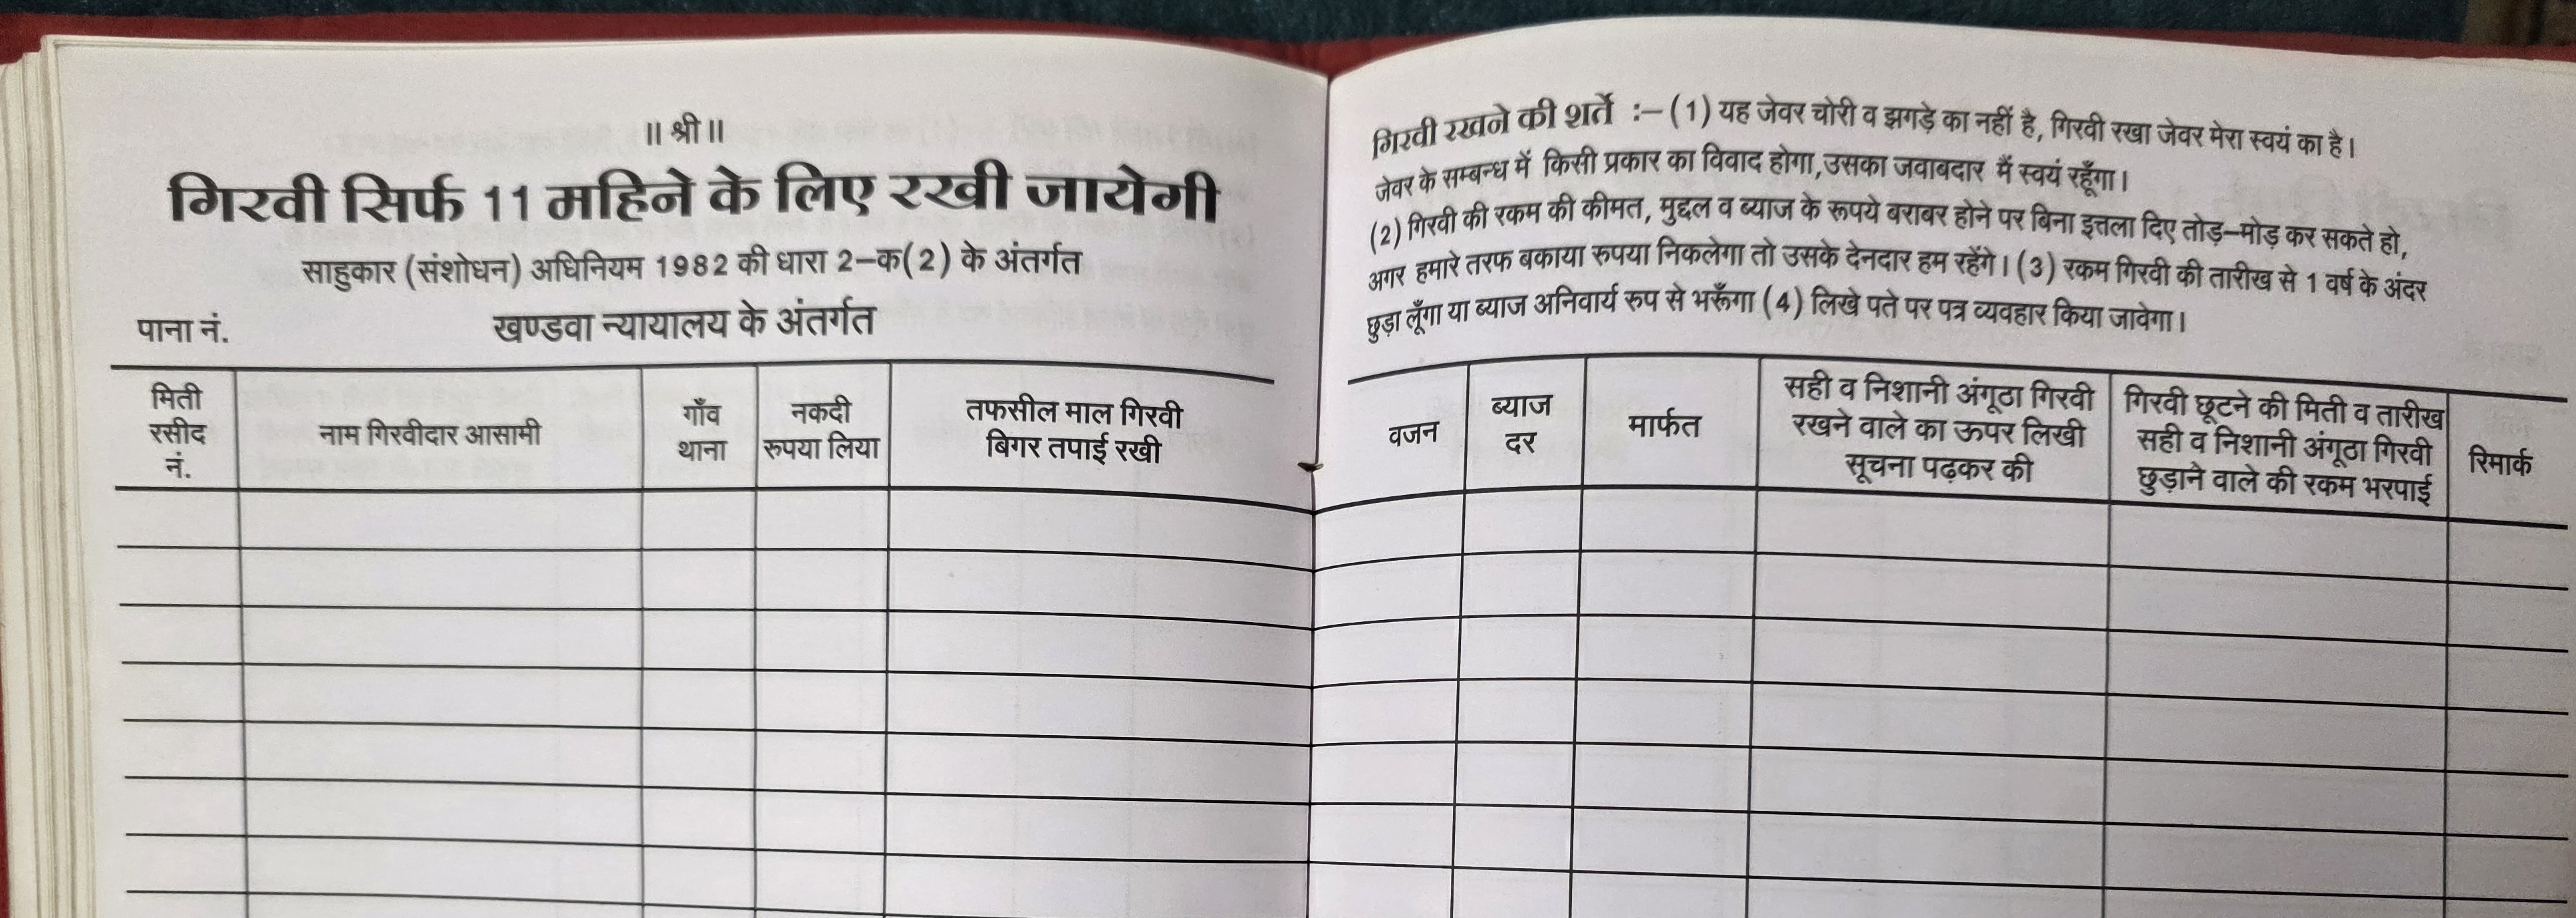 ॥ श्री ॥
गिरवी सिर्फ 11 महिने के लिए रखी जायेगी
साहुकार (संशोधन) अधिनियम 1982 की धारा 2-क(2) के अंतर्गत
पाना नं. खण्डवा न्यायालय के अंतर्गत
मिती
रसीद
नं.
नाम गिरवीदार आसामी
गाँव
थाना
नकदी
रुपया लिया
तफसील माल गिरवी
बिगर तपाई रखी
गिरवी रखने की शर्ते :– (1) यह जेवर चोरी व झगड़े का नहीं है, गिरवी रखा जेवर मेरा स्वयं का है।
जेवर के सम्बन्ध में किसी प्रकार का विवाद होगा,उसका जवाबदार मैं स्वयं रहूँगा।
(2) गिरवी की रकम की कीमत, मुद्दल व ब्याज के रूपये बराबर होने पर बिना इत्तला दिए तोड़–मोड़ कर सकते हो,
अगर हमारे तरफ बकाया रुपया निकलेगा तो उसके देनदार हम रहेंगे। (3) रकम गिरवी की तारीख से 1 वर्ष के अंदर
छुड़ा लूँगा या ब्याज अनिवार्य रुप से भरूँगा (4) लिखे पते पर पत्र व्यवहार किया जावेगा।
वजन
ब्याज
दर
मार्फत
सही व निशानी अंगूठा गिरवी
रखने वाले का ऊपर लिखी
सूचना पढ़कर की
गिरवी छूटने की मिती व तारीख
सही व निशानी अंगूठा गिरवी
छुड़ाने वाले की रकम भरपाई
रिमार्क